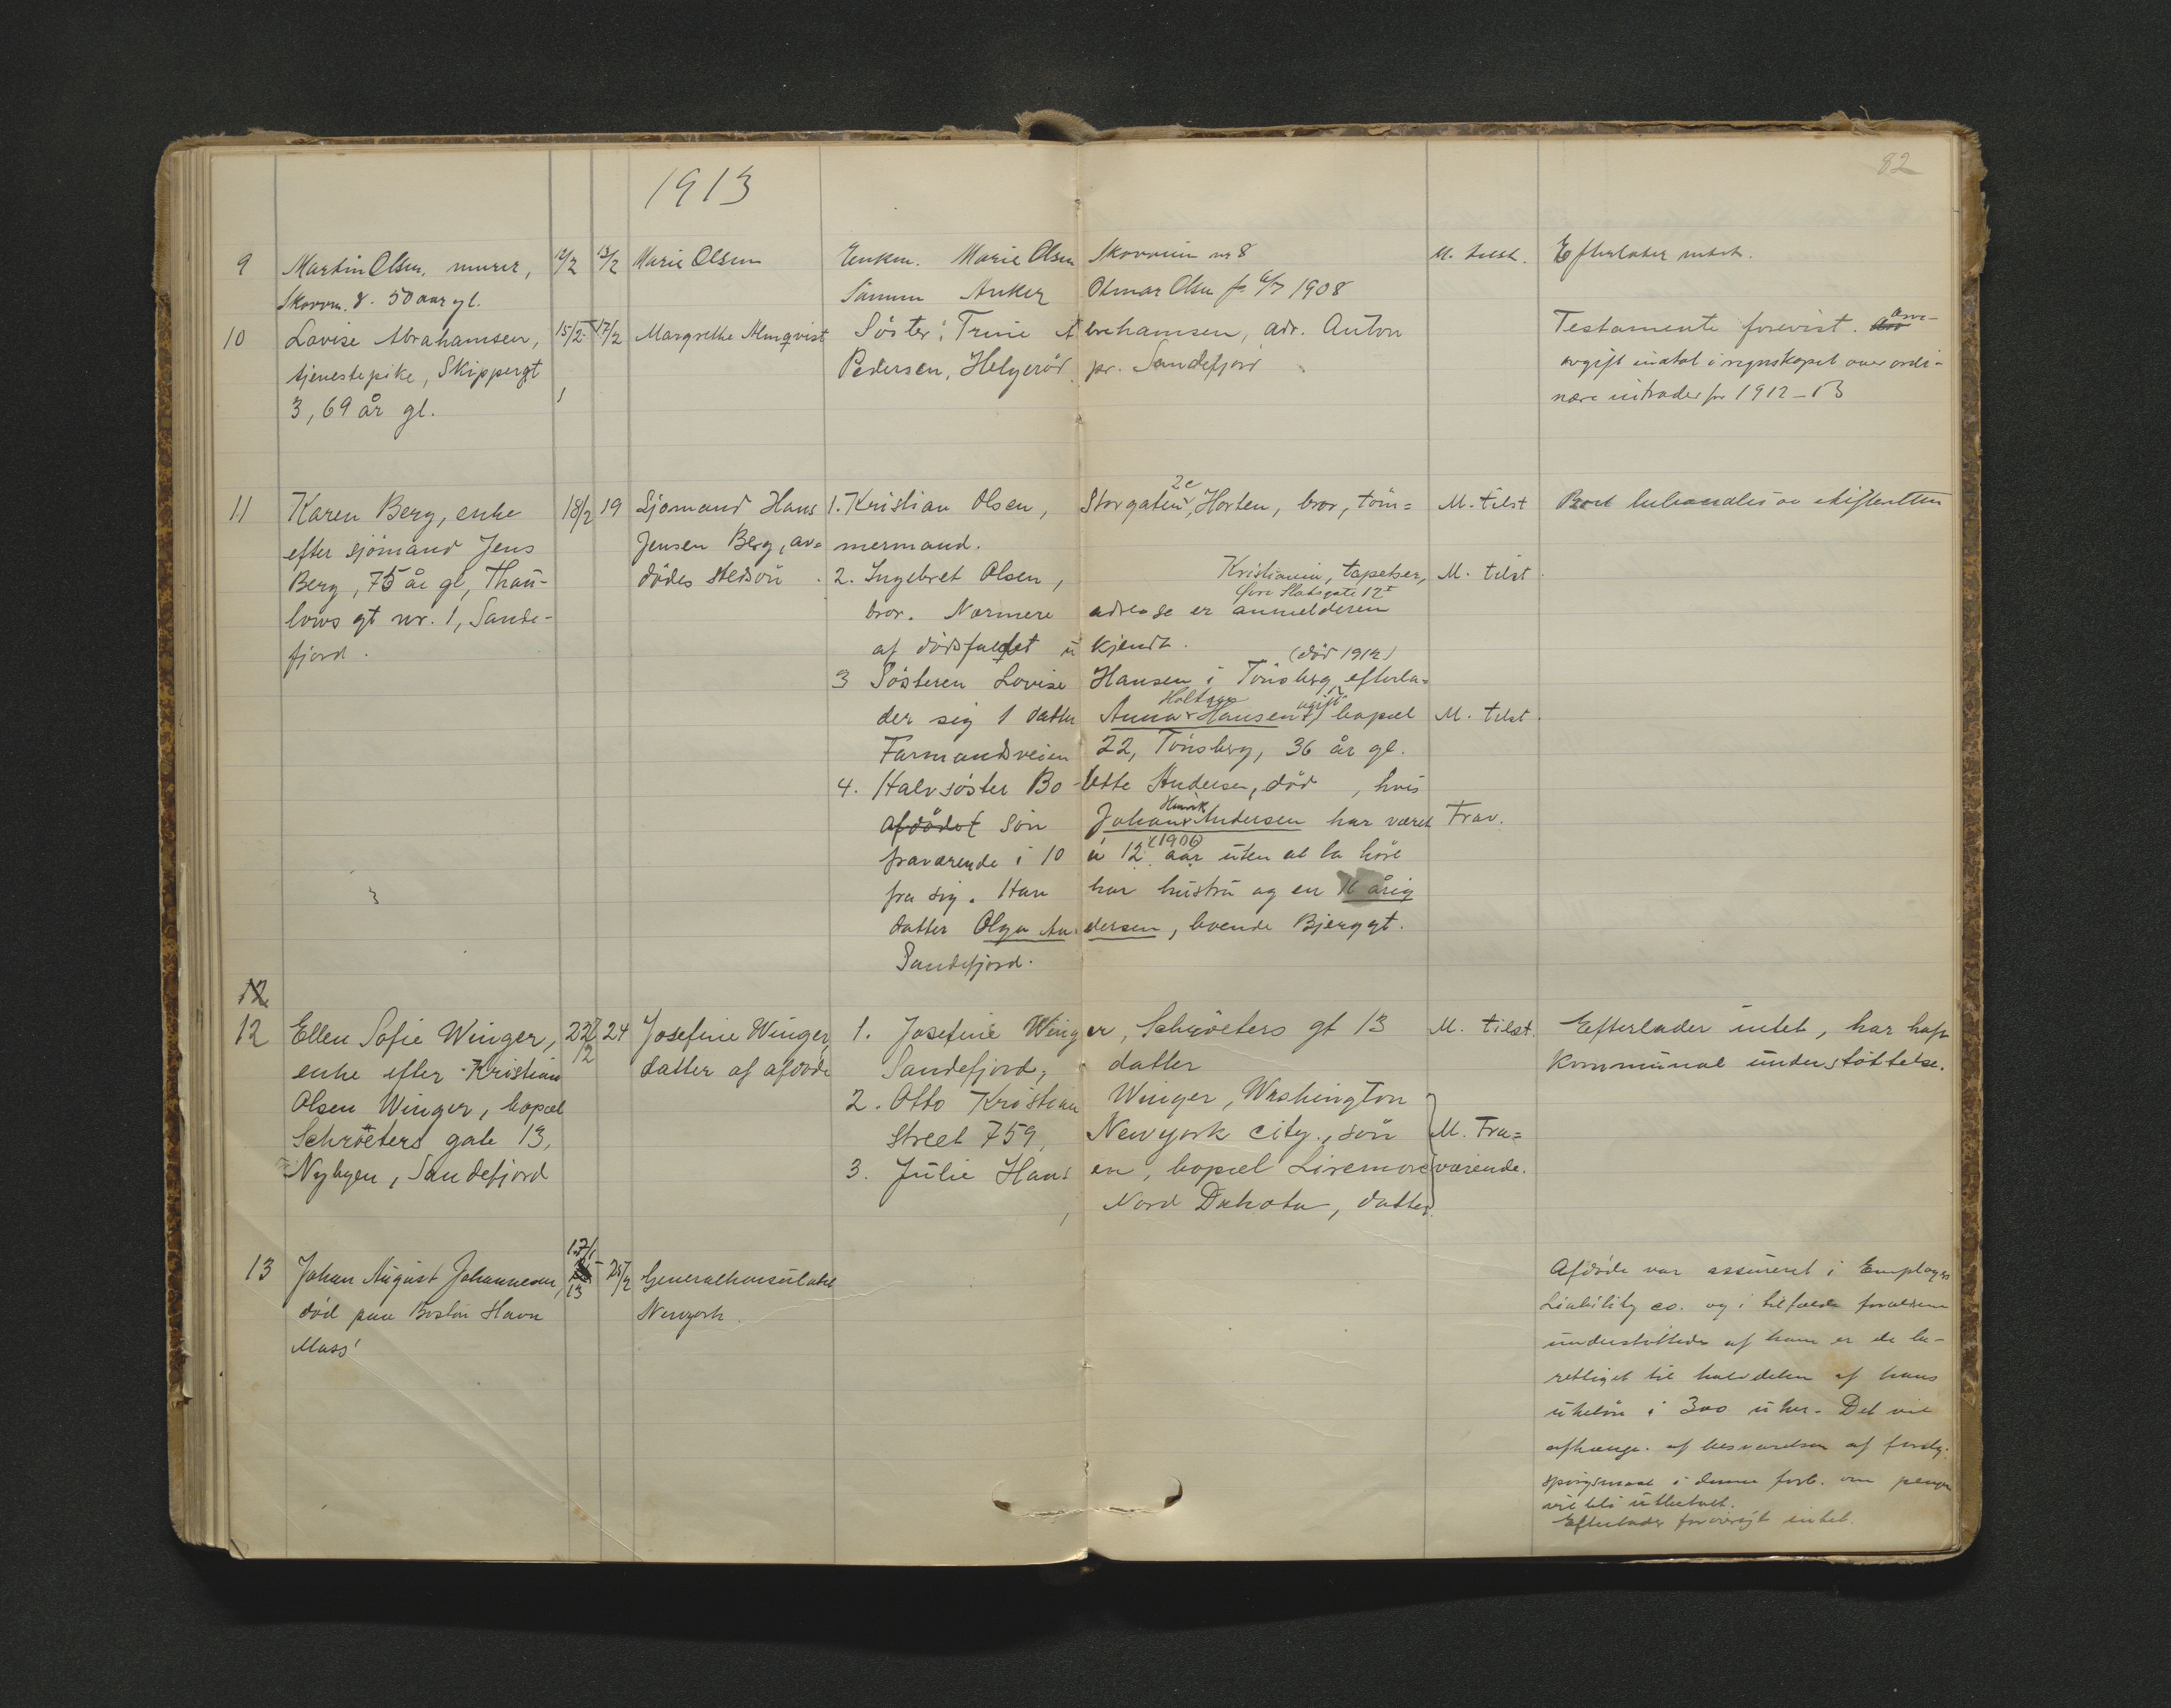 1913
82
9 Martin Olsen, murer, 12/2 13/2 Marie Olsen Enken Marie Olsen Skovveien nr 8 M. tilst. Efterlader intet.
Skovvn. 8. 50 aar gl. Sønnen Anker Otmar Olsen f. 6/7 1908
10 Lovise Abrahamsen, 15/2 17/2 Margrethe Almqvist Søster: Trine Abrahamsen, adr. Anton Testamente forevist. Arve-
tjenestepike, Skippergt Pedersen, Helgerød pr. Sandefjord avgift indtat i regnskapet over ordi-
3, 69 år gl. nære intrader for 1912-13
11 Karen Berg, enke 18/2 19 Sjømand Hans 1. Kristian Olsen, Storgaten 2c, Horten, bror, tøm= M. tilst Boet behandles av
efter sjømand Jens Jensen Berg, av= mermand.
Berg, 75 år gl, Thau- dødes stedsøn. 2. Ingebret Olsen, Kristiania, tapetser, M. tilst.
Øvre Slotsgate 12 I
lows gt nr. 1, Sande- bror. Nærmere adresse er anmelderen
fjord. af dødsfaldet ukjendt.
(død 1912)
3 Søsteren Lovise Hansen i Tønsberg efterla=
Holtung ugift
der sig 1 datter Anna Hansen, bopæl M. tilst.
Farmandsveien 22, Tønsberg, 36 år gl.
4. Halvsøster Bolette Andersen, død , hvis
Henrik
afdødet søn Johan Andersen har været Frav.
(1900)
fraværende i 10 à 12 aar uten at la høre
fra sig. Han har hustru og en 16 årig
datter Olga Andersen, boende Bjerggt.
Sandefjord.
12
12 Ellen Sofie Winger, 22/2 24 Josefine Winger, 1. Josefine Winger, Schrøeters gt 13 M. tilst. Efterlader intet, har hat
enke efter Kristian datter af afdøde Sandefjord, datter kommunal understøttelse.
Olsen Winger, bopæl 2. Otto Kristian Winger, Washington
Schrøeters gate 13, Street 759, Newyork city., søn M. Fra=
Nybyen, Sandefjord 3. Julie Hansen, bopæl Livemore værende.
Nord Dakota, datter.
13 Johan August Johannesen, 17/1 13 25/2 Generalkonsulatet Afdøde var assureret i Employers
død paa Boston Havn Newyork. Liability co. og i tilfælde forældrene
Mass. understøttedes af ham er de be-
rettiget til halvdelen af hans
ukeløn i 300 uker. Det vil
afhænge af besvarelsen af forsk.
spørgsmaal i denne forb. om pengene
vil bli utbetalt.
Efterlader forøvrigt intet.